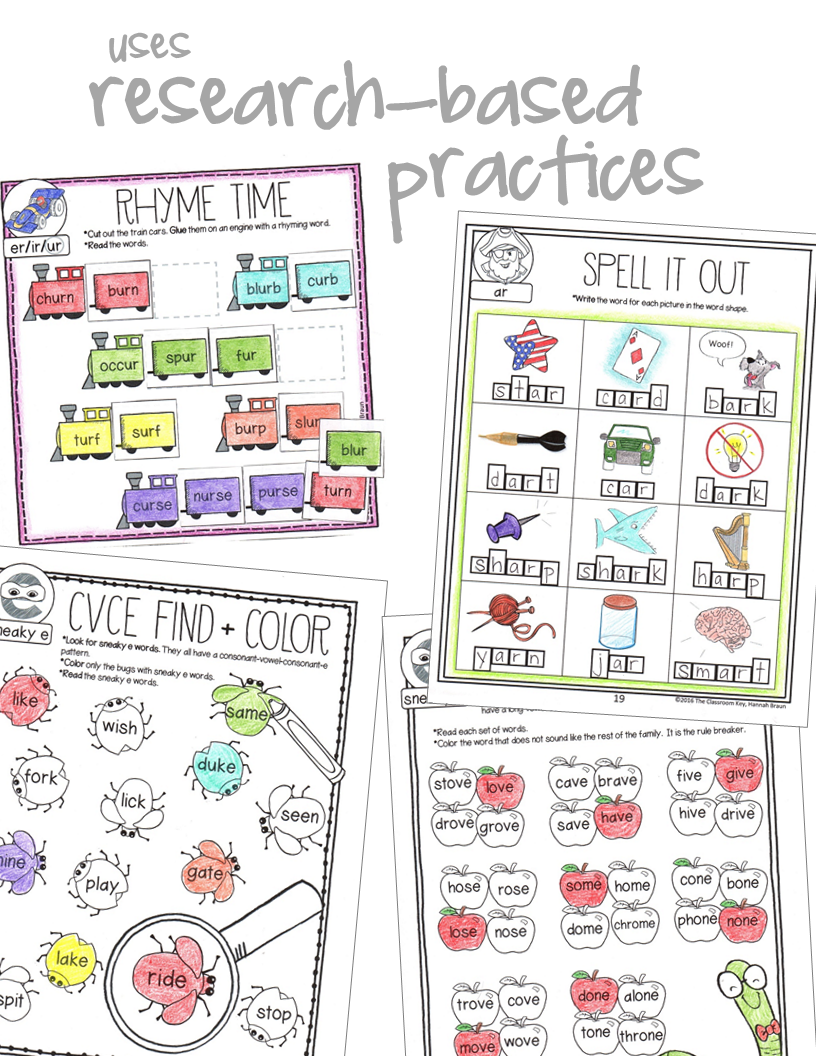 uses
research-based
practices
RHYME TIME
*Cut out the train cars. Glue them on an engine with a rhyming word.
*Read the words.
er/ir/ur
churn burn
blurb curb
occur spur fur
turf surf
burp slur
blur
curse nurse purse turn
SPELL IT OUT
*Write the word for each picture in the word shape.
ar
Woof!
star card bark
dart car dark
sharp shark harp
yarn jar smart
19
©2016 The Classroom Key, Hannah Braun
CVCE FIND + COLOR
*Look for sneaky e words. They all have a consonant-vowel-consonant-e
pattern.
*Color only the bugs with sneaky e words.
*Read the sneaky e words.
neaky e
like
wish
same
fork
duke
lick
seen
ine
play
gate
lake
ride
spit
stop
sne
have a long
*Read each set of words.
*Color the word that does not sound like the rest of the family. It is the rule breaker.
stove love
drove grove
cave brave
save have
five give
hive drive
hose rose
lose nose
some home
dome chrome
cone bone
phone none
trove cove
move wove
done alone
tone throne
Braun